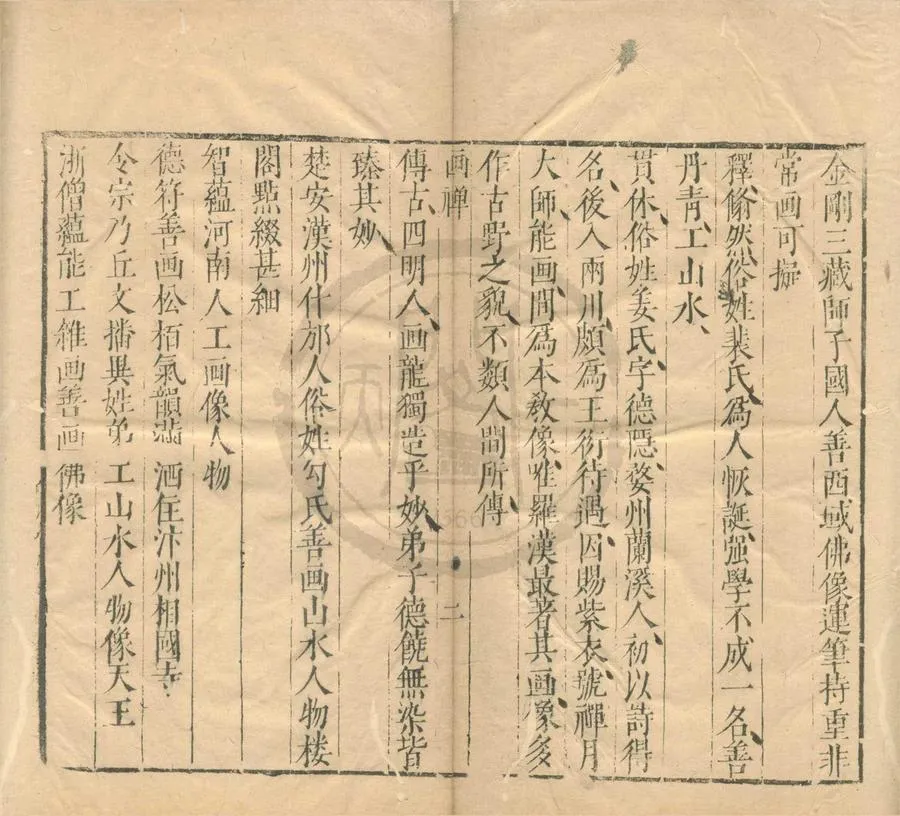 金剛三藏師子國人善西域佛像運筆持重非
常画可擬
釋翛然俗姓裴氏為人恢誕強學不成一名善
丹青工山水
貫休俗姓姜氏字德隱婺州蘭溪人初以詩得
名後入兩川頗為王衍待遇因賜紫衣號禪月
大師能画間為本教像唯羅漢最著其画像多
作古野之貌不類人間所傳
画禅 二
傳古四明人画龍獨造乎妙弟子德饒無染皆
臻其妙
楚安漢州什邡人俗姓勾氏善画山水人物楼
閣點綴甚細
智蘊河南人工画像人物
德符善画松栢氣韻瀟洒住汴州相國寺
令宗乃丘文播異姓弟工山水人物像天王
浙僧蘊能工雜画善画佛像